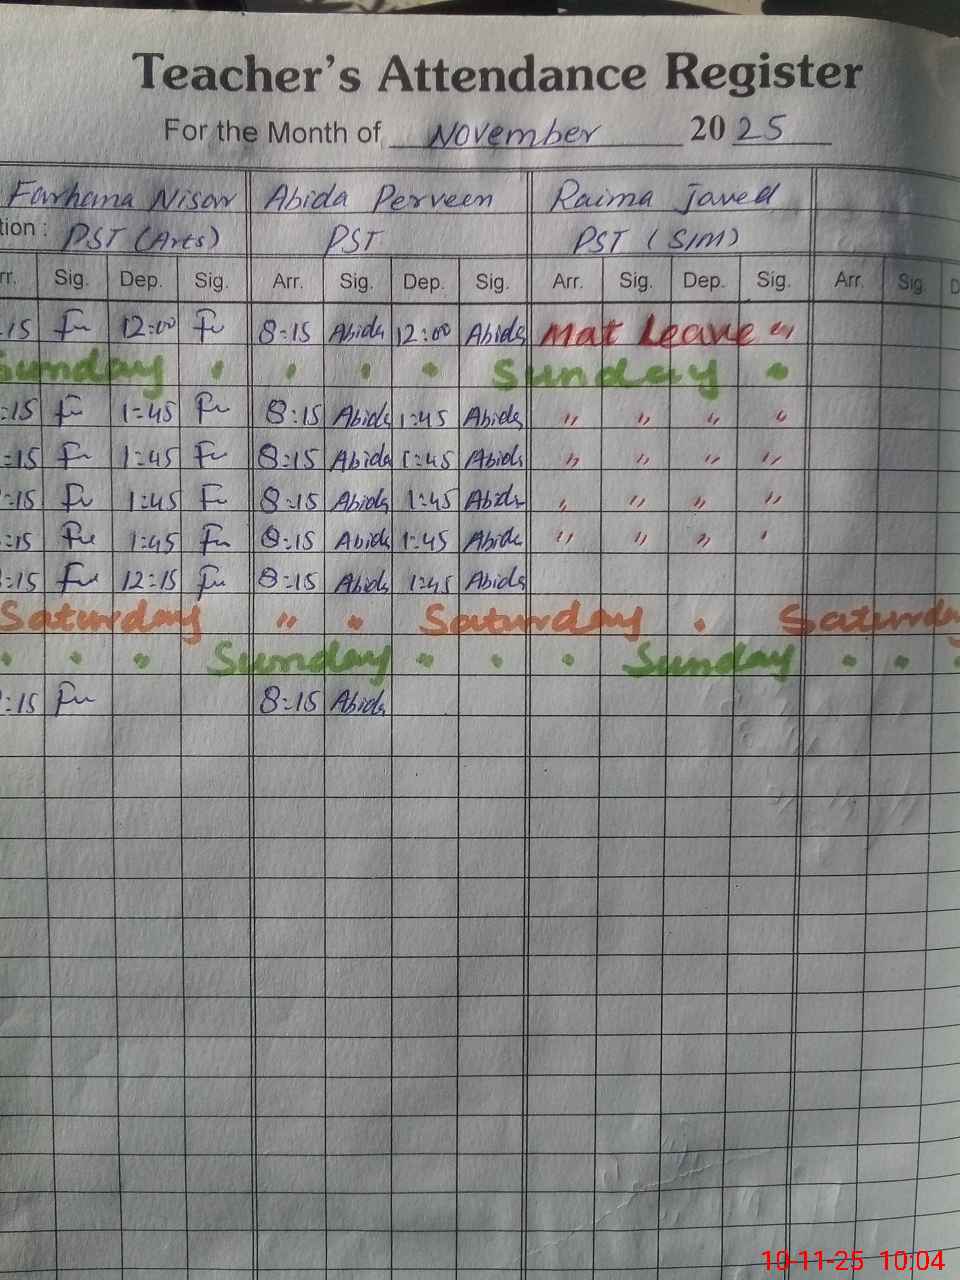 Teacher's Attendance Register
For the Month of November 2025
Farhana Nisar Abida Perveen Raima Javed
tion : PST (Arts) PST PST (S/M)
rr. Sig. Dep. Sig. Arr. Sig. Dep. Sig. Arr. Sig. Dep. Sig. Arr. Sig D
:15 Fu 12:00 Fu 8:15 Abida 12:00 Abida Mat Leave "
Sunday " " " " Sunday "
:15 Fu 1:45 Fu 8:15 Abida 1:45 Abida " " " "
:15 Fu 1:45 Fu 8:15 Abida 1:45 Abida " " " "
:15 Fu 1:45 Fu 8:15 Abida 1:45 Abida " " " "
:15 Fu 1:45 Fu 8:15 Abida 1:45 Abida " " " "
:15 Fu 12:15 Fu 8:15 Abida 1:45 Abida
Saturday " " Saturday " Saturday
" " " Sunday " " " Sunday " " "
:15 Fu 8:15 Abida
10-11-25 10:04